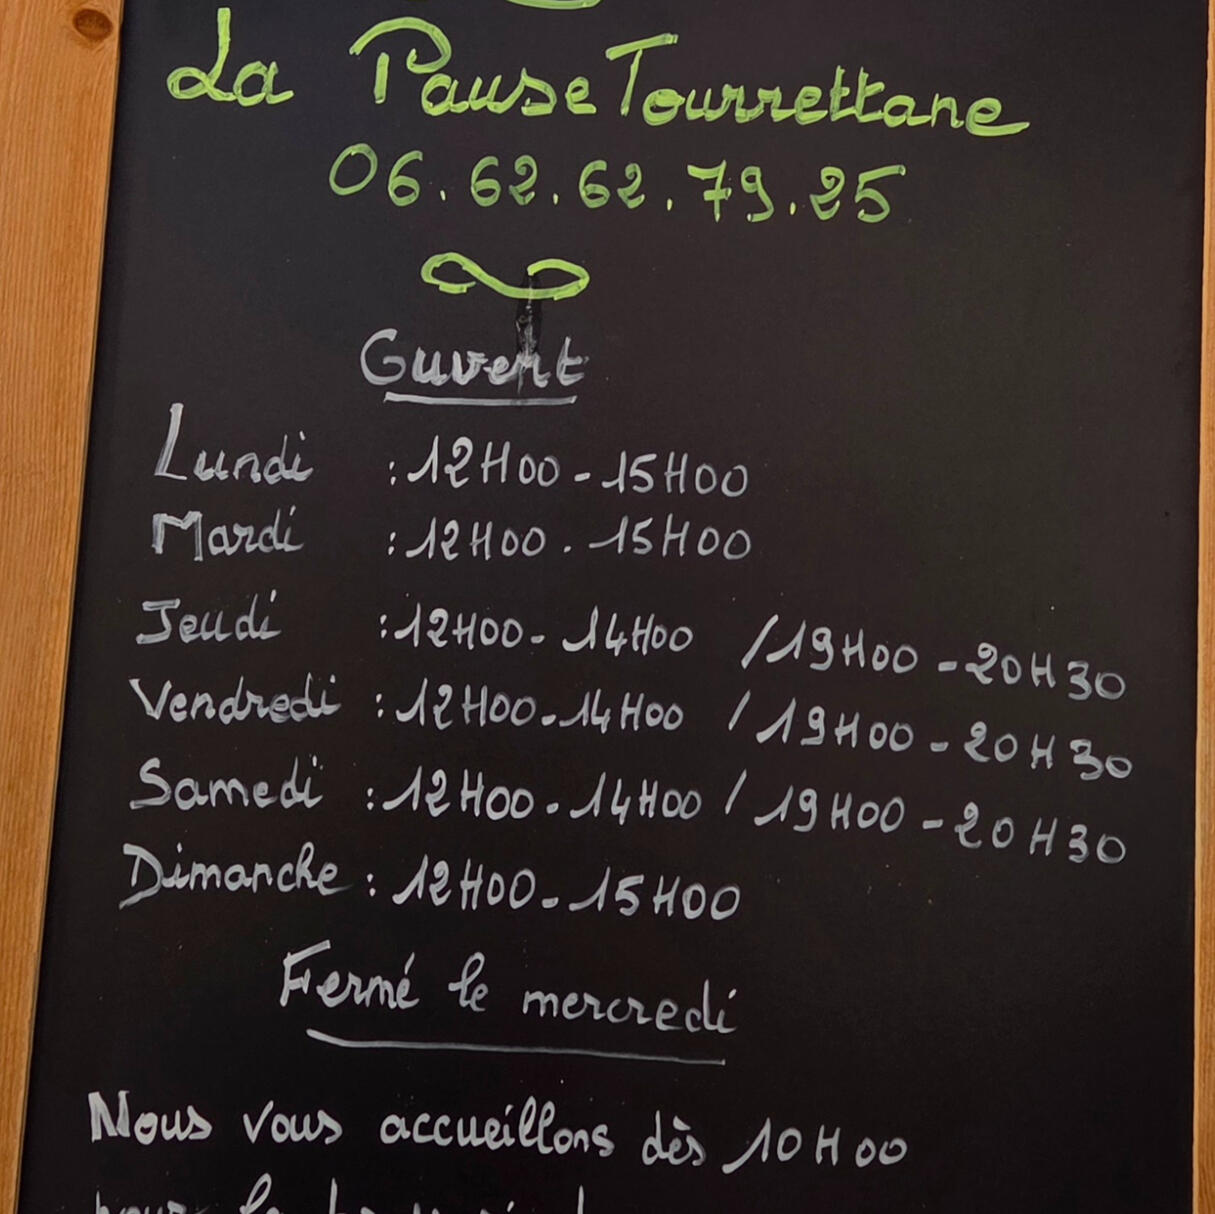 La Pause Tourrettane
06.62.62.79.25
Ouvert
Lundi : 12H00 - 15H00
Mardi : 12H00 . 15H00
Jeudi : 12H00 - 14H00 / 19H00 - 20H30
Vendredi : 12H00 - 14H00 / 19H00 - 20H30
Samedi : 12H00 - 14H00 / 19H00 - 20H30
Dimanche : 12H00 - 15H00
Fermé le mercredi
Nous vous accueillons dès 10H00
pour